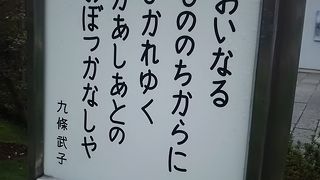 おいなる
もののちからに
ひかれゆく
わがあしあとの
おぼつかなしや
九條武子